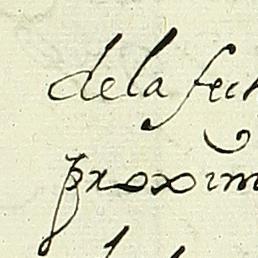 dela fech
proxim